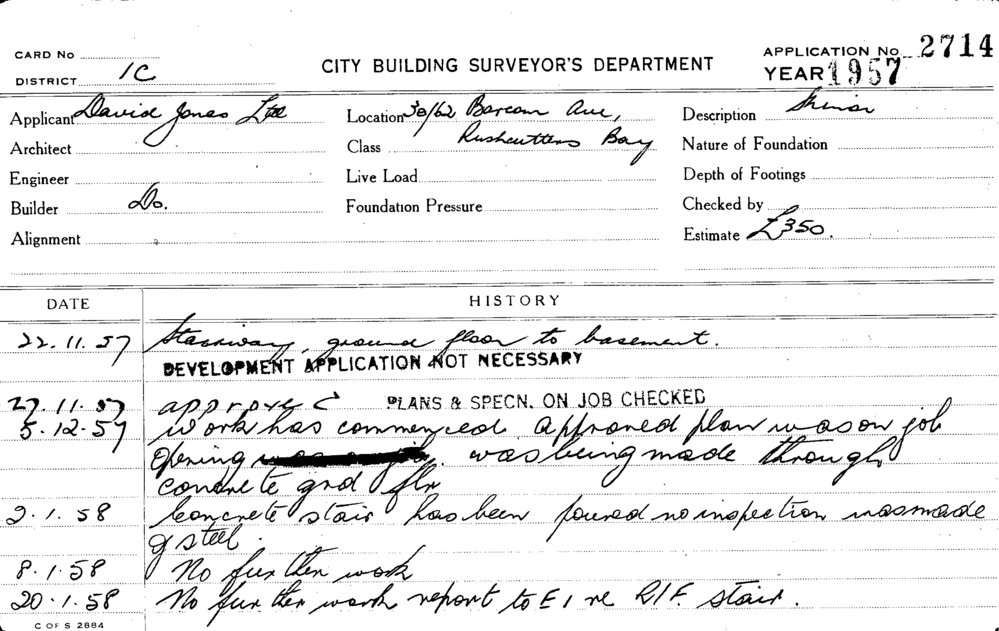 CARD No
APPLICATION No 2714
DISTRICT 1C
CITY BUILDING SURVEYOR'S DEPARTMENT
YEAR 1957
Applicant David Jones Ltd
Location 30/62 Barcom Ave,
Description
Architect
Class Rushcutters Bay
Nature of Foundation
Engineer
Live Load
Depth of Footings
Builder Do.
Foundation Pressure
Checked by
Alignment
Estimate £350.
DATE
HISTORY
22.11.57 Stairway, ground floor to basement.
DEVELOPMENT APPLICATION NOT NECESSARY
27.11.57 approved PLANS & SPECN. ON JOB CHECKED
5.12.57 Work has commenced approved plan was on job
opening was being made through
concrete grd flr
2.1.58 Concrete stair has been poured no inspection was made
of steel.
8.1.58 No further work
20.1.58 No further work report to E1 re R/F. stair.
C OF S 2884